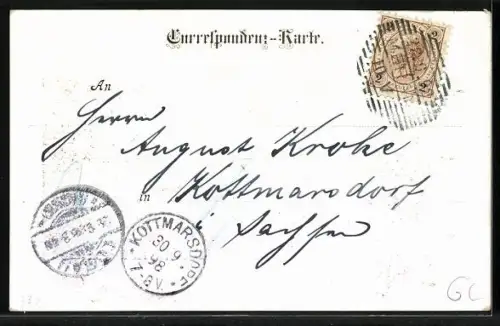 Correspondenz-Karte.
2 2
An
Herrn
August Kroke
in Kottmarsdorf
i Sachsen
* KOTTMARSDORF *
30 9
98
7-8 V.
GL